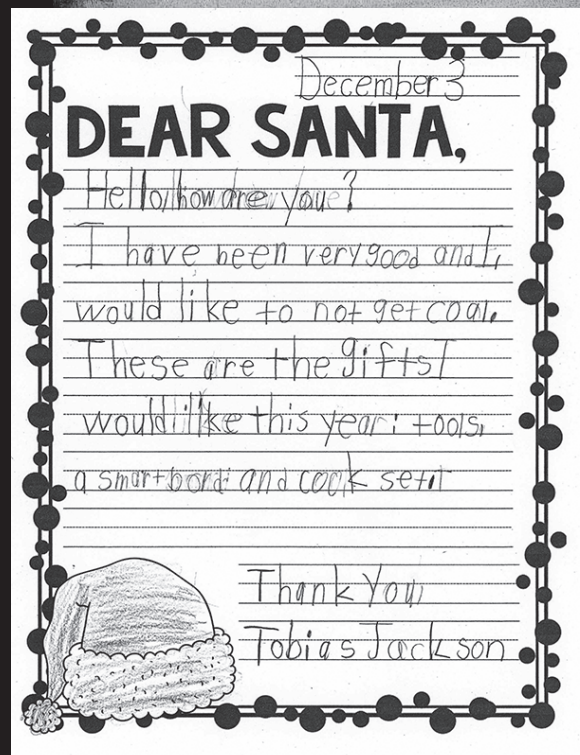 December 3
DEAR SANTA,
Hello, how are you?
I have been very good and I,
would like to not get coal.
These are the gifts I
would like this year: tools,
a smart bord and cook set
Thank You,
Tobias Jackson